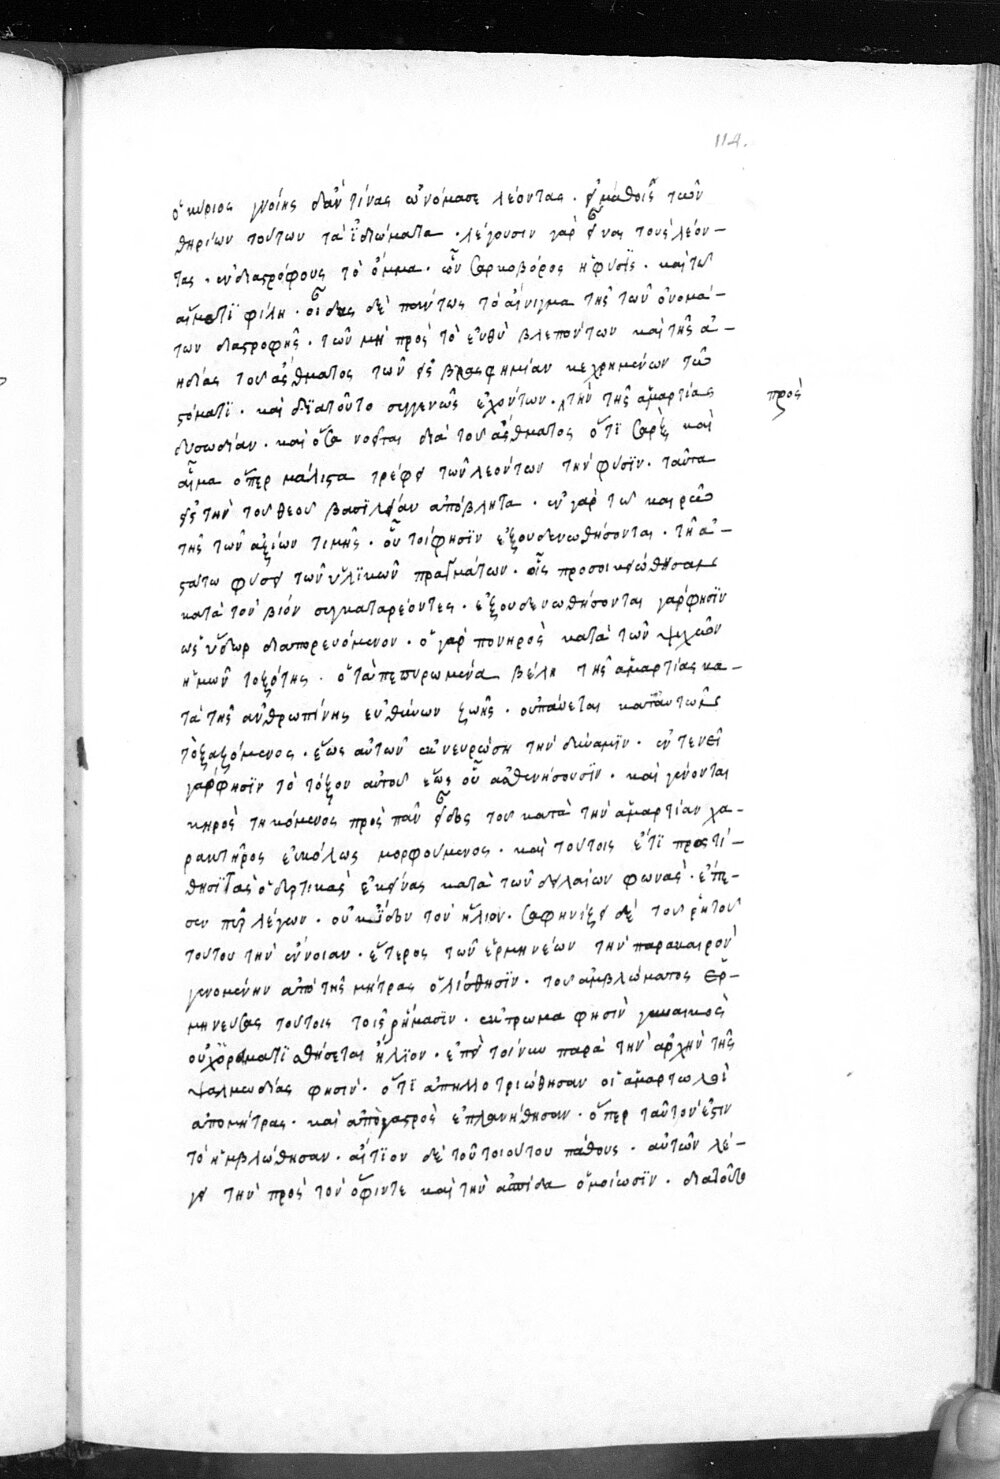 114.
ὁ κύριος γνοίης δἂν τίνας ὠνόμασε λέοντας · εἰ μάθοις τῶν
θηρίων τούτων τὰ ἰδιώματα · λέγουσιν γὰρ εἶναι τοὺς λέον-
τας · ἐνδιαστρόφους τὸ ὄμμα · ὧν σαρκοβόρος ἡ φύσις · καὶ τῷ
αἵματι φίλη · οἶδας δὲ πάντως τὸ αἴνιγμα τῆς τῶν ὀνομά-
των διαστροφῆς · τῶν μὴ πρὸς τὸ εὐθὺ βλεπόντων καὶ τῆς ἀ-
ηδίας τοῦ ἄσθματος τῶν εἰς βλασφημίαν κεχρημένων τῷ
στόματι · καὶ διατοῦτο συγγενῶς ἐχόντων · τὴν τῆς ἁμαρτίας
πρὸς
δυσωδίαν · καὶ ὅσα νοεῖται διὰ τοῦ ἄσθματος ὅτι σὰρξ καὶ
αἷμα ὅπερ μάλιστα τρέφει τῶν λεόντων τὴν φύσιν · ταῦτα
εἰς τὴν τοῦ θεοῦ βασιλείαν ἀπόβλητα · ἐν γὰρ τῷ καιρῷ
τῆς τῶν ἀξίων τιμῆς · οὗτοί φησιν ἐξουδενωθήσονται · τῇ ἀ-
στάτῳ φύσει τῶν ὑλικῶν πραγμάτων · οἷς προσοικειώθησαν
κατὰ τὸν βίον συγκαταρέοντες · ἐξουδενωθήσονται γάρ φησιν
ὡς ὕδωρ διαπορευόμενον · ὁ γὰρ πονηρὸς κατὰ τῶν ψυχῶν
ἡμῶν τοξότης · ὁ τὰ πεπυρωμένα βέλη τῆς ἁμαρτίας κα-
τὰ τῆς ἀνθρωπίνης εὐθύνων ζωῆς · οὐ παύεται κατ' αὐτῶν
τοξαζόμενος · ἕως αὐτῶν ἐκνευρώσῃ τὴν δύναμιν · ἐντενεῖ
γάρ φησιν τὸ τόξον αὐτοῦ ἕως οὗ ἀσθενήσουσιν · καὶ γένονται
κηρὸς τηκόμενος πρὸς πᾶν εἶδος τοῦ κατὰ τὴν ἁμαρτίαν χα-
ρακτῆρος εὐκόλως μορφούμενος · καὶ τούτοις ἔτι προστί-
θησι τὰς ὀδυρτικὰς ἐκείνας κατὰ τῶν δειλαίων φωνάς · ἔπε-
σεν πῦρ λέγων · οὐκ εἶδον τὸν ἥλιον · σαφηνίζει δὲ τοῦ ῥητοῦ
τούτου τὴν ἔννοιαν · ἕτερος τῶν ἑρμηνέων τὴν παρακαιρὸν
γενομένην ἀπὸ τῆς μήτρας ὀλίσθησιν · τοῦ ἀμβλώματος ἑρ-
μηνεύσας τούτοις τοῖς ῥήμασιν · ἔκτρωμα φησὶν γυναικὸς
οὐχ ὁράματι ἀθήσεται ἥλιον · ἐπεὶ τοίνυν παρὰ τὴν ἀρχὴν τῆς
ψαλμωδίας φησίν · ὅτι ἀπηλλοτριώθησαν οἱ ἁμαρτωλοὶ
ἀπομήτρας · καὶ ἀπὸ γαστρὸς ἐπλανήθησαν · ὅπερ ταὐτόν ἐστιν
τὸ ἠμβλώθησαν · αἴτιον δὲ τοῦ τοιούτου πάθους · αὐτῶν λέ-
γει τὴν πρὸς τὸν ὄφιν τε καὶ τὴν ἀσπίδα ὁμοίωσιν · διατοῦτο